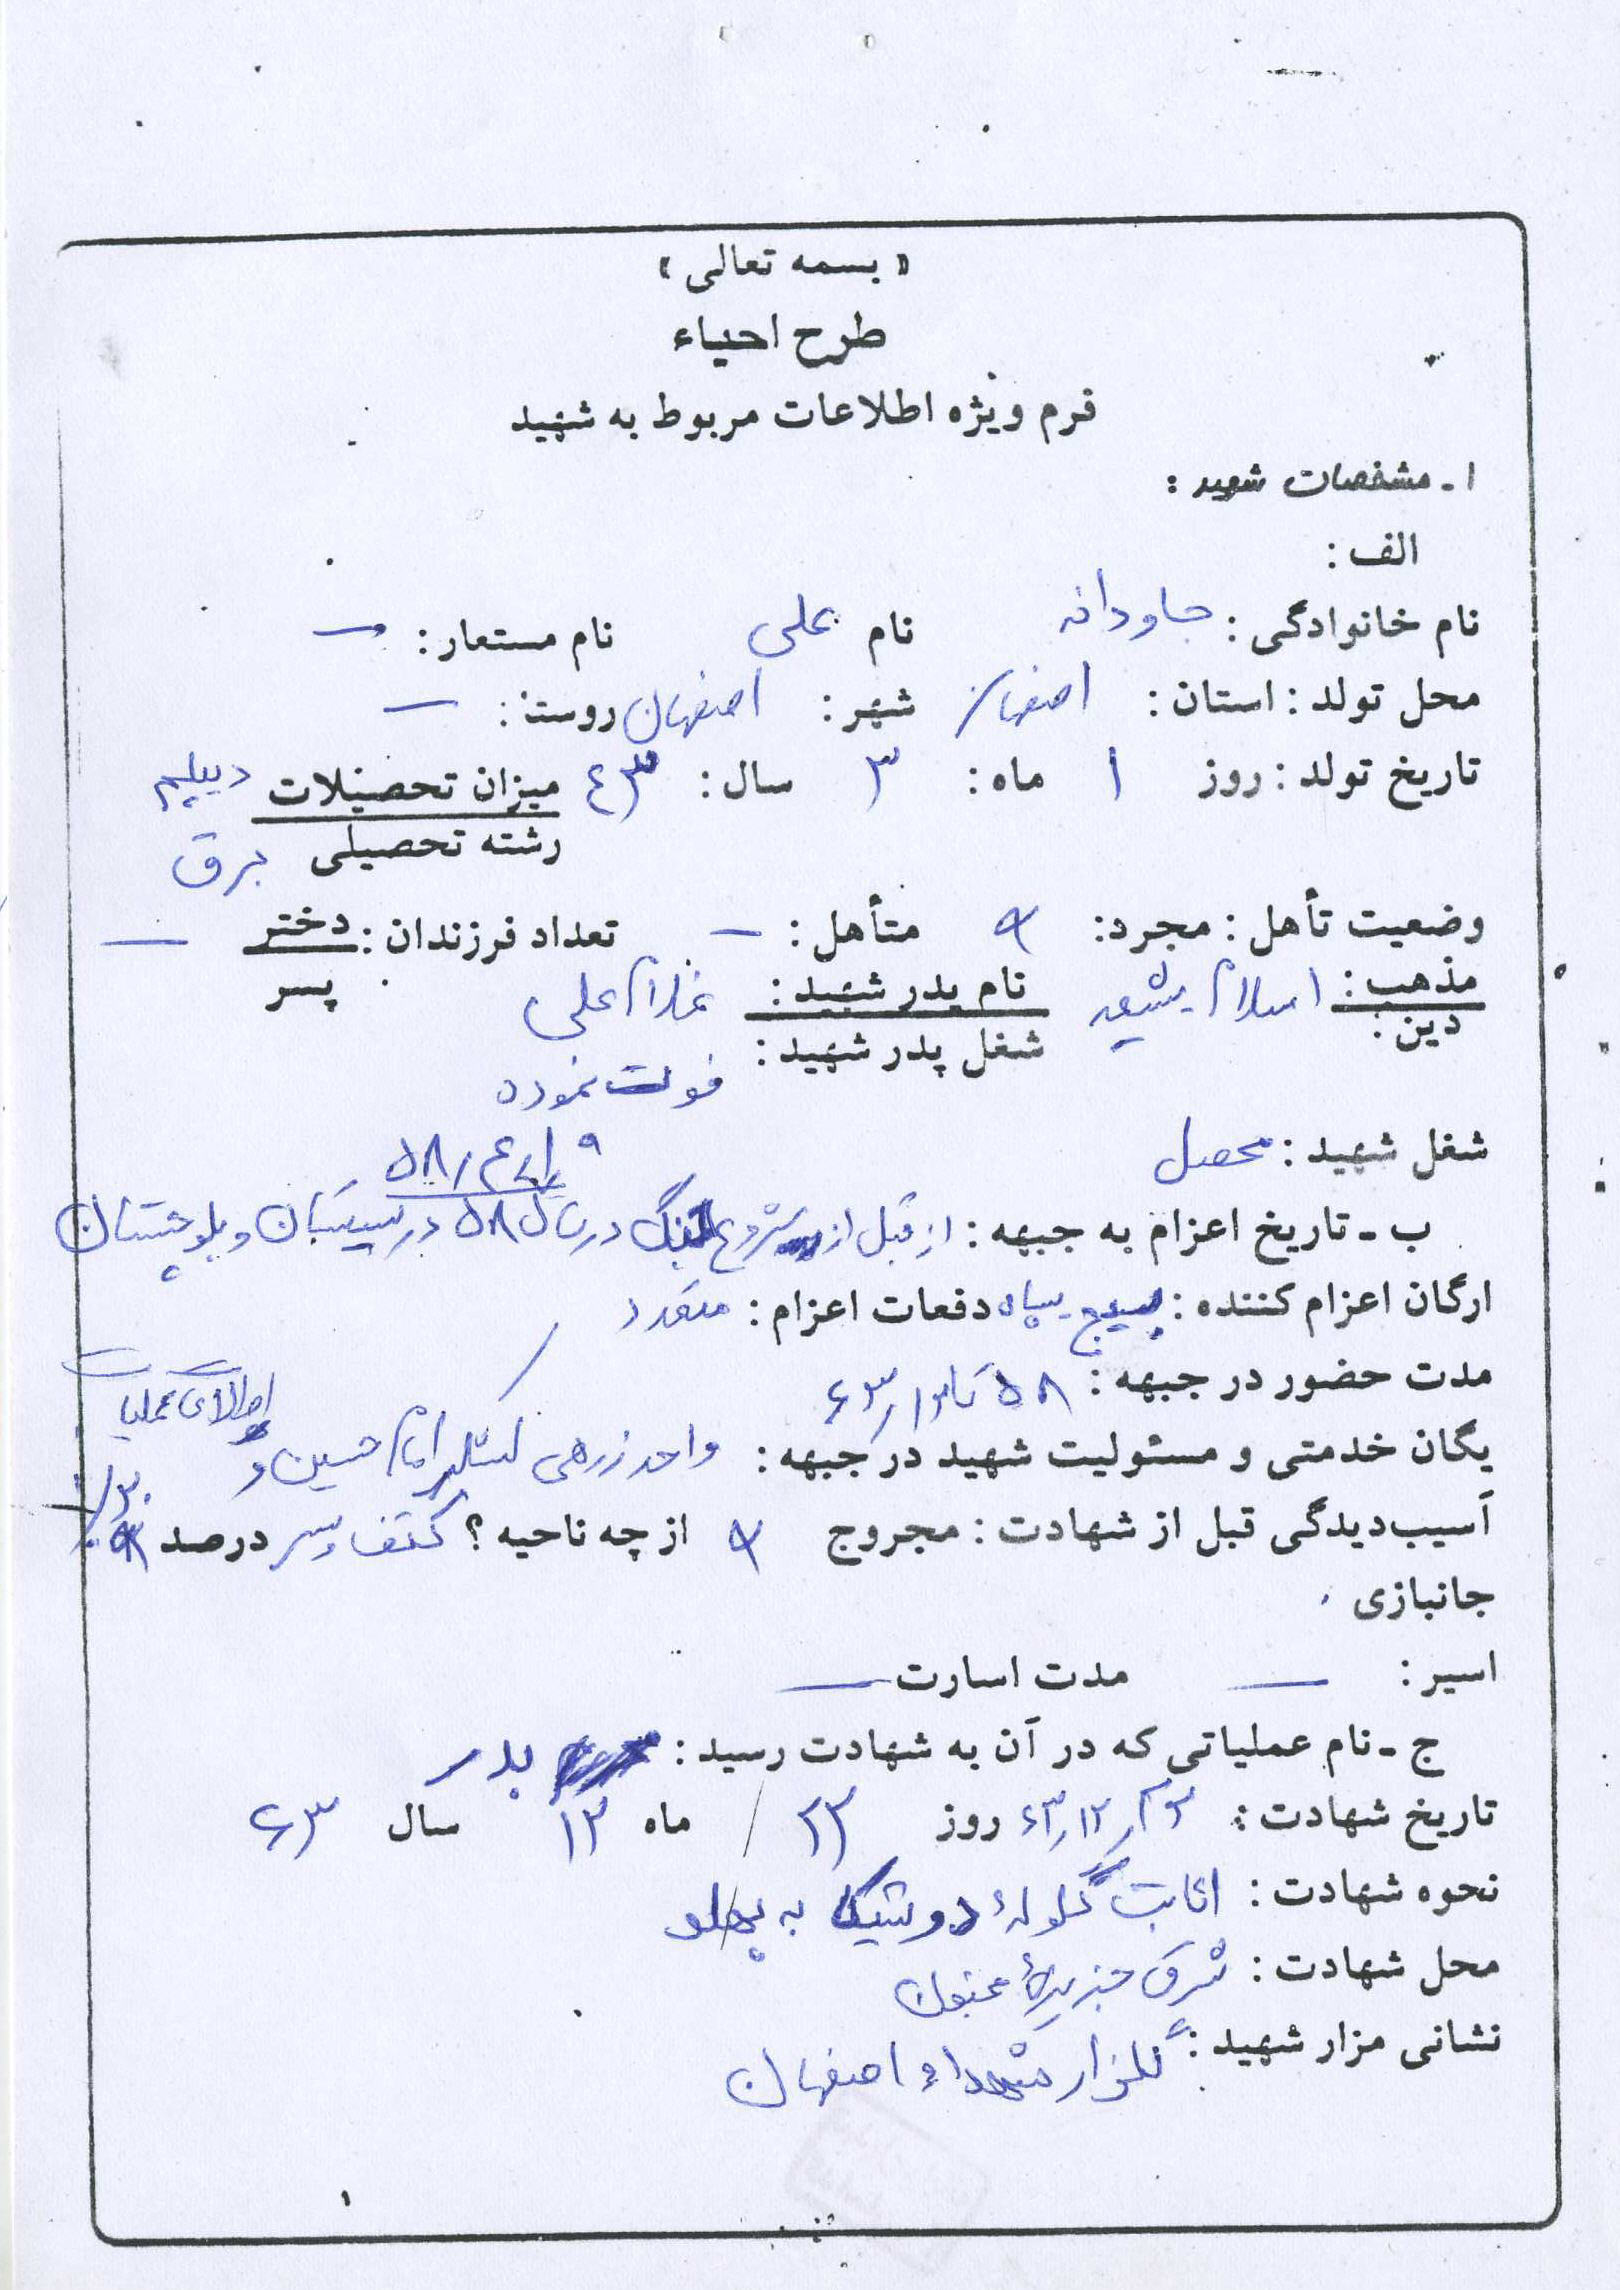 « بسمه تعالی »
طرح احیاء
فرم ویژه اطلاعات مربوط به شهید
۱ـ مشخصات شهید :
الف :
نام خانوادگی : جاودانه نام علی نام مستعار : —
محل تولد : استان : اصفهان شهر : اصفهان روستا : —
تاریخ تولد : روز ۱ ماه : ۳ سال : ۴۳ میزان تحصیلات دیپلم
رشته تحصیلی برق
وضعیت تأهل : مجرد : متأهل : — تعداد فرزندان : دختر —
پسر
مذهب : اسلام شیعه نام پدر شهید : غلامعلی
دین : شغل پدر شهید : فوت نموده
شغل شهید : محصل
۵۸/۴/۱۹
ب ـ تاریخ اعزام به جبهه : از قبل از شروع جنگ در سال ۵۸ در سیستان و بلوچستان
ارگان اعزام کننده : بسیج سپاه دفعات اعزام : متعدد
مدت حضور در جبهه : ۵۸ تا
یگان خدمتی و مسئولیت شهید در جبهه : واحد زرهی لشکر امام حسین و اطلاعات عملیات
آسیب‌دیدگی قبل از شهادت : مجروح از چه ناحیه ؟ کتف و سر درصد
جانبازی
اسیر : — مدت اسارت —
ج ـ نام عملیاتی که در آن به شهادت رسید : بدر
تاریخ شهادت : ۶۳/۱۲/۲۳ روز ۲۳ / ماه ۱۲ سال ۶۳
نحوه شهادت : اثابت گلولهٔ دوشیکا به پهلو
محل شهادت : شرق جزیرهٔ مجنون
نشانی مزار شهید : گلزار شهداء اصفهان
۱